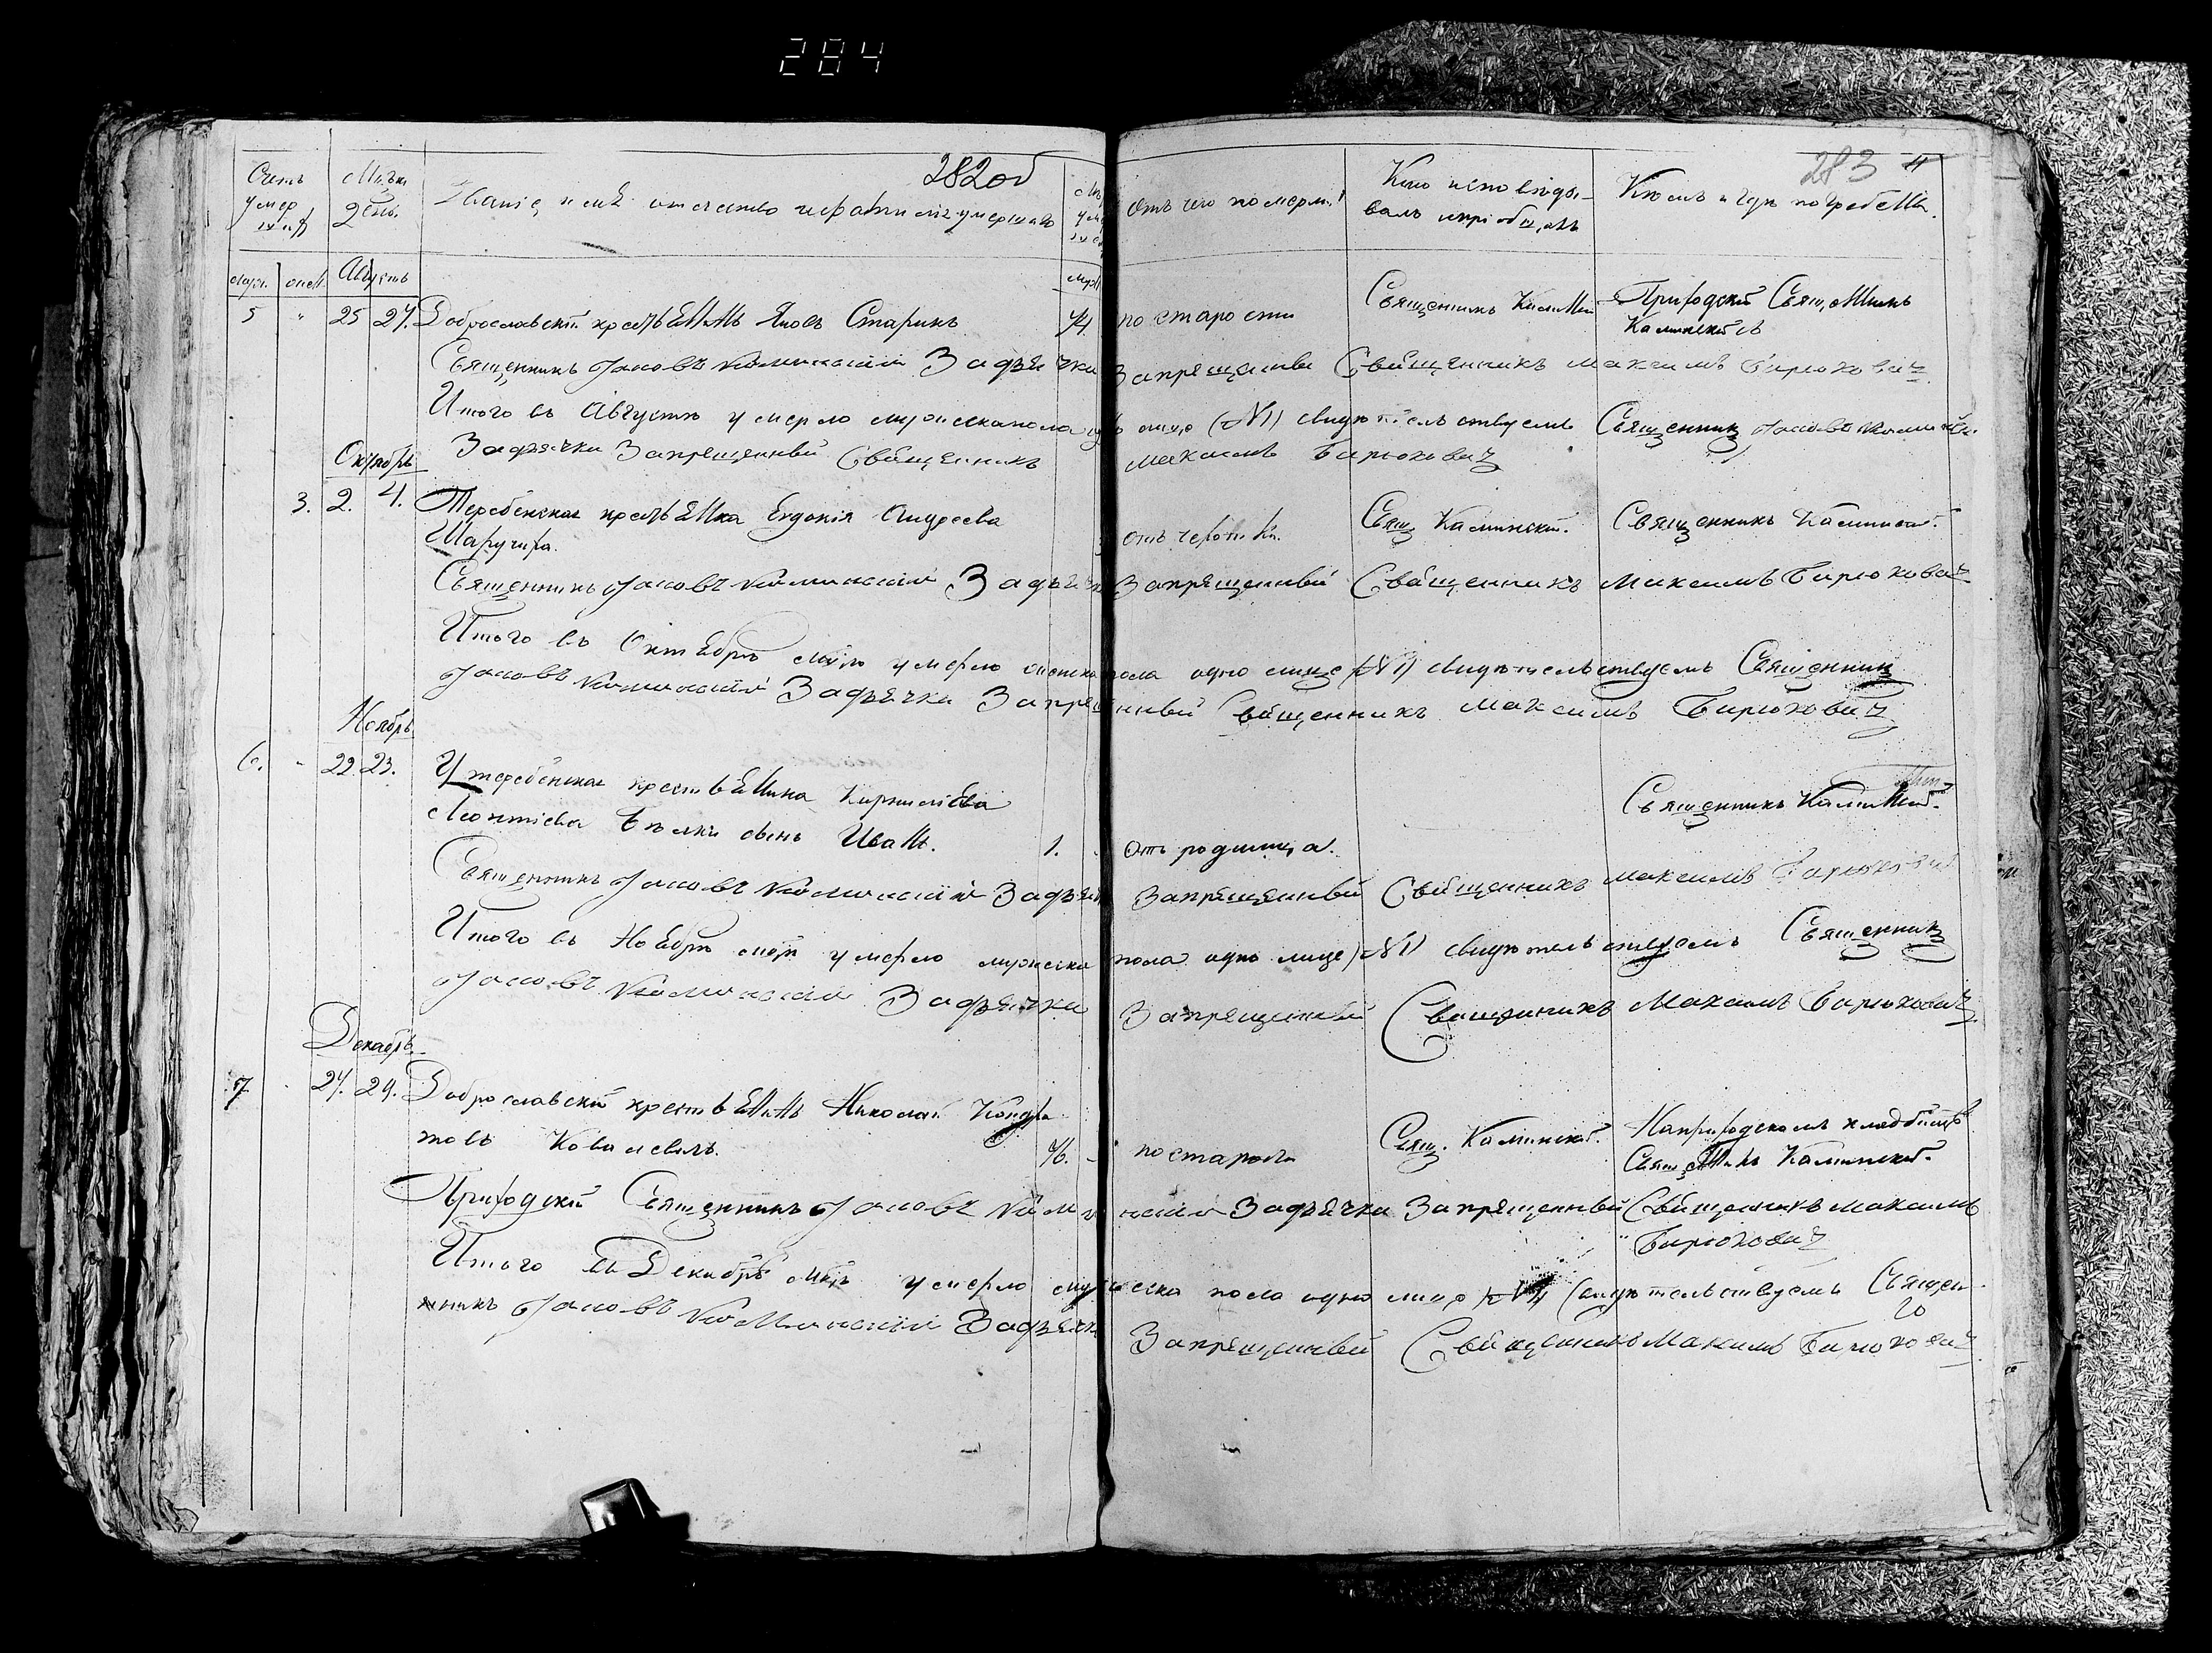 284
282об
283
Счетъ умершихъ
Мѣсяцъ день
Званіе, имя отчество и фамилія умершаго
Отъ чего померъ
Кто исповѣдывалъ и пріобщалъ
Кѣмъ и гдѣ погребены
муж. жен. Августъ
5 " 25 27. Доброславскій крестьянинъ Яковъ Старикъ 74. по старости Священникъ Камин Приходскій Священникъ
Каминскій
Священникъ Іаковъ Каминскій За дьячка Запрещенный Священникъ Максимъ Бирюковичъ
Итого въ Августѣ умерло мужеска пола одно лице (№1) свидѣтельствуемъ Священникъ Іаковъ Каминскій
За дьячка Запрещенный Священникъ Максимъ Бирюковичъ
Октябрь
3. 2. 4. Теребенская крестьянка Евдокія Андреева отъ чахотки Свящ Каминскій. Священникъ Каминскій.
Священникъ Іаковъ Каминскій За дьячка Запрещенный Священникъ Максимъ Бирюковичъ
Итого въ Октябрѣ мцѣ умерло женска пола одно лице (№1) свидѣтельствуемъ Священникъ
Іаковъ Каминскій За дьячка Запрещенный Священникъ Максимъ Бирюковичъ
Ноябрь
6. " 22 23. Священникъ Каминскій.
Утеребенская крестьянина
Леонтіева сынъ Иванъ. 1. Отъ родимца.
Священникъ Іаковъ Каминскій За дьячка Запрещенный Священникъ Максимъ Бирюковичъ
Итого въ Ноябрѣ мцѣ умерло мужеска пола одно лице (№1) свидѣтельствуемъ Священникъ
Іаковъ Каминскій За дьячка Запрещенный Священникъ Максимъ Бирюковичъ
Декабрь
7 27. 29. Доброславскій крестьянинъ Николай Кондра
товъ Ковалевичъ. 76. по старости Свящ. Каминскій. На приходскомъ кладбищѣ
Священникъ Каминскій.
Приходскій Священникъ Іаковъ Каминскій За дьячка Запрещенный Священникъ Максимъ
Бирюковичъ
Итого въ Декабрѣ мцѣ умерло мужеска пола одно лице (№1) свидѣтельствуемъ Священ
никъ Іаковъ Каминскій За дьячка Запрещенный Священникъ Максимъ Бирюковичъ